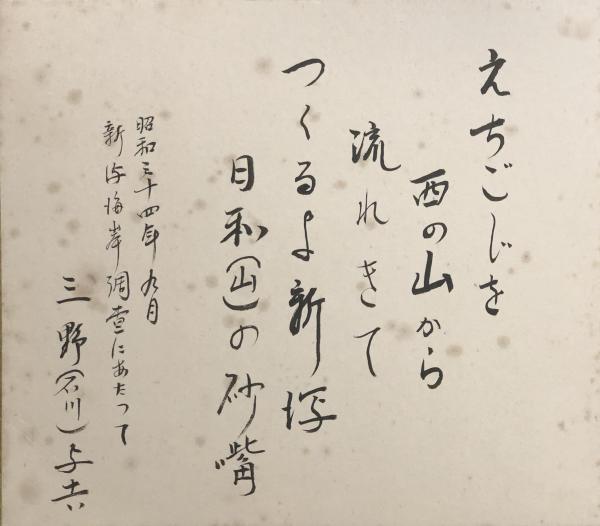 えちごじを
西の山から
流れきて
つくるよ新潟
日和(山)の砂嘴
昭和三十四年九月
新潟海岸調査にあたって
三野(石川)与吉